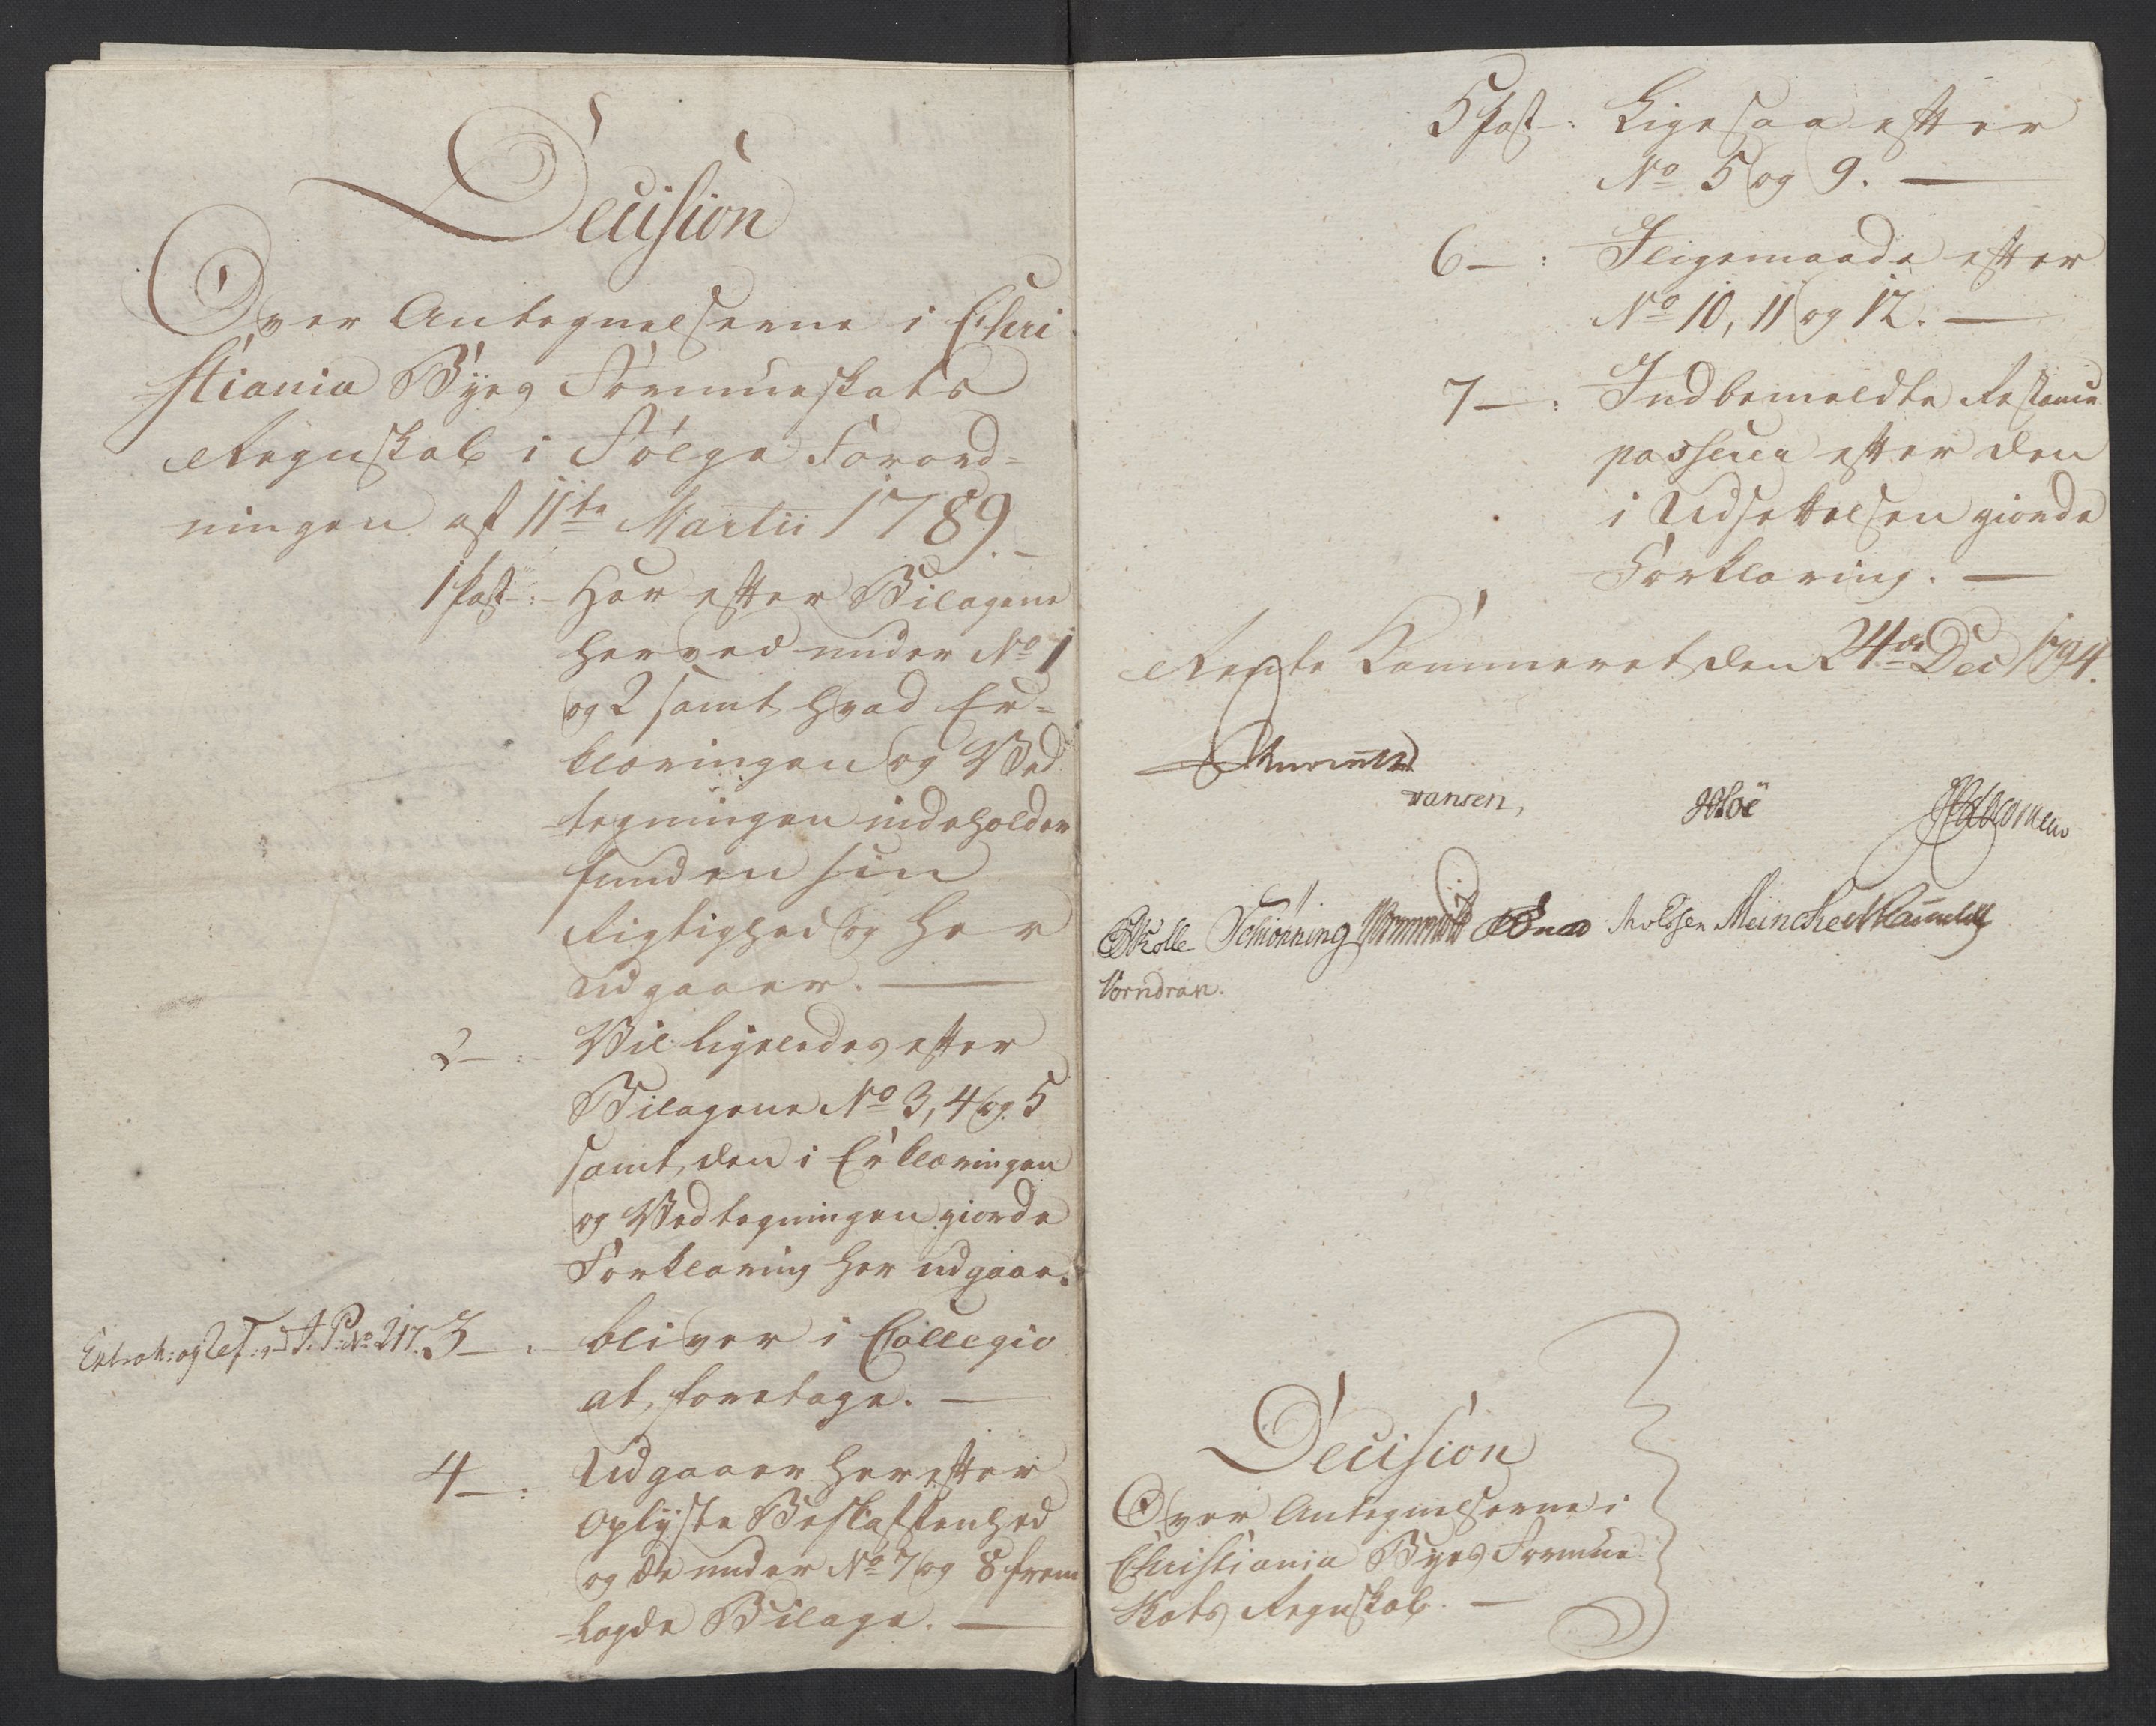 Decision
Over Antegnelserne i Chri
stiania Byes Formueskats
Regnskab i Følge Forord=
ningen af 11te Martii 1789.
1 Post: Har efter Bilagene
herved under No 1
og 2 samt hvad Er=
klæringen og Ved
tegningen indeholder
funden sin
Rigtighed og her
udgaaer.
2 — : Vil ligeledes efter
Bilagene No 3, 4 og 5
samt den i Erklæringen
og Vedtegningen giorde
Forklaring her udgaae.
Extrah: og Ref: A. P. No 217. 3 — : bliver i Collegio
at foretage.
4 — : Udgaaer her efter
oplyste Beskaffenhed
og de under No 7 og 8 frem
lagde Bilage.
5 Post: Ligesaa efter
No 5 og 9.
6 — : Iligemaade efter
No 10, 11 og 12.
7 — : Indbemeldte Restance
passerer efter den
i Udsettelsen giorde
Forklaring.
Rente Kammeret den 24de Dec 1794.
Wormskiold
Hansen,
Schiønning Meincke
Vorndran.
Decision
Over Antegnelserne i
Christiania Byes Formue
Skats Regnskab.